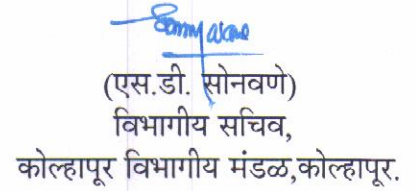 (एस.डी. सोनवणे)
विभागीय सचिव,
कोल्हापूर विभागीय मंडळ,कोल्हापूर.